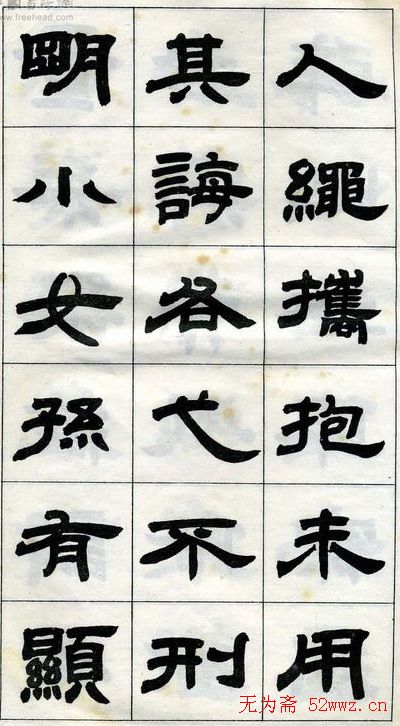 www.freehead.com
人繩攜抱未用
其誨各弋不刑
朙小女孫有顯
无为斋 52wwz.cn